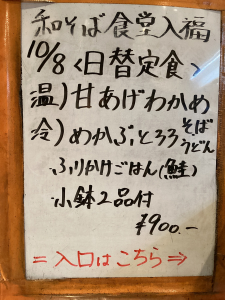 和そば食堂入福
10/8〈日替定食〉
温)甘あげわかめ
冷)めかぶとろろ そばうどん
ふりかけごはん(鮭)
小鉢2品付
¥900.-
=入口はこちら⇒